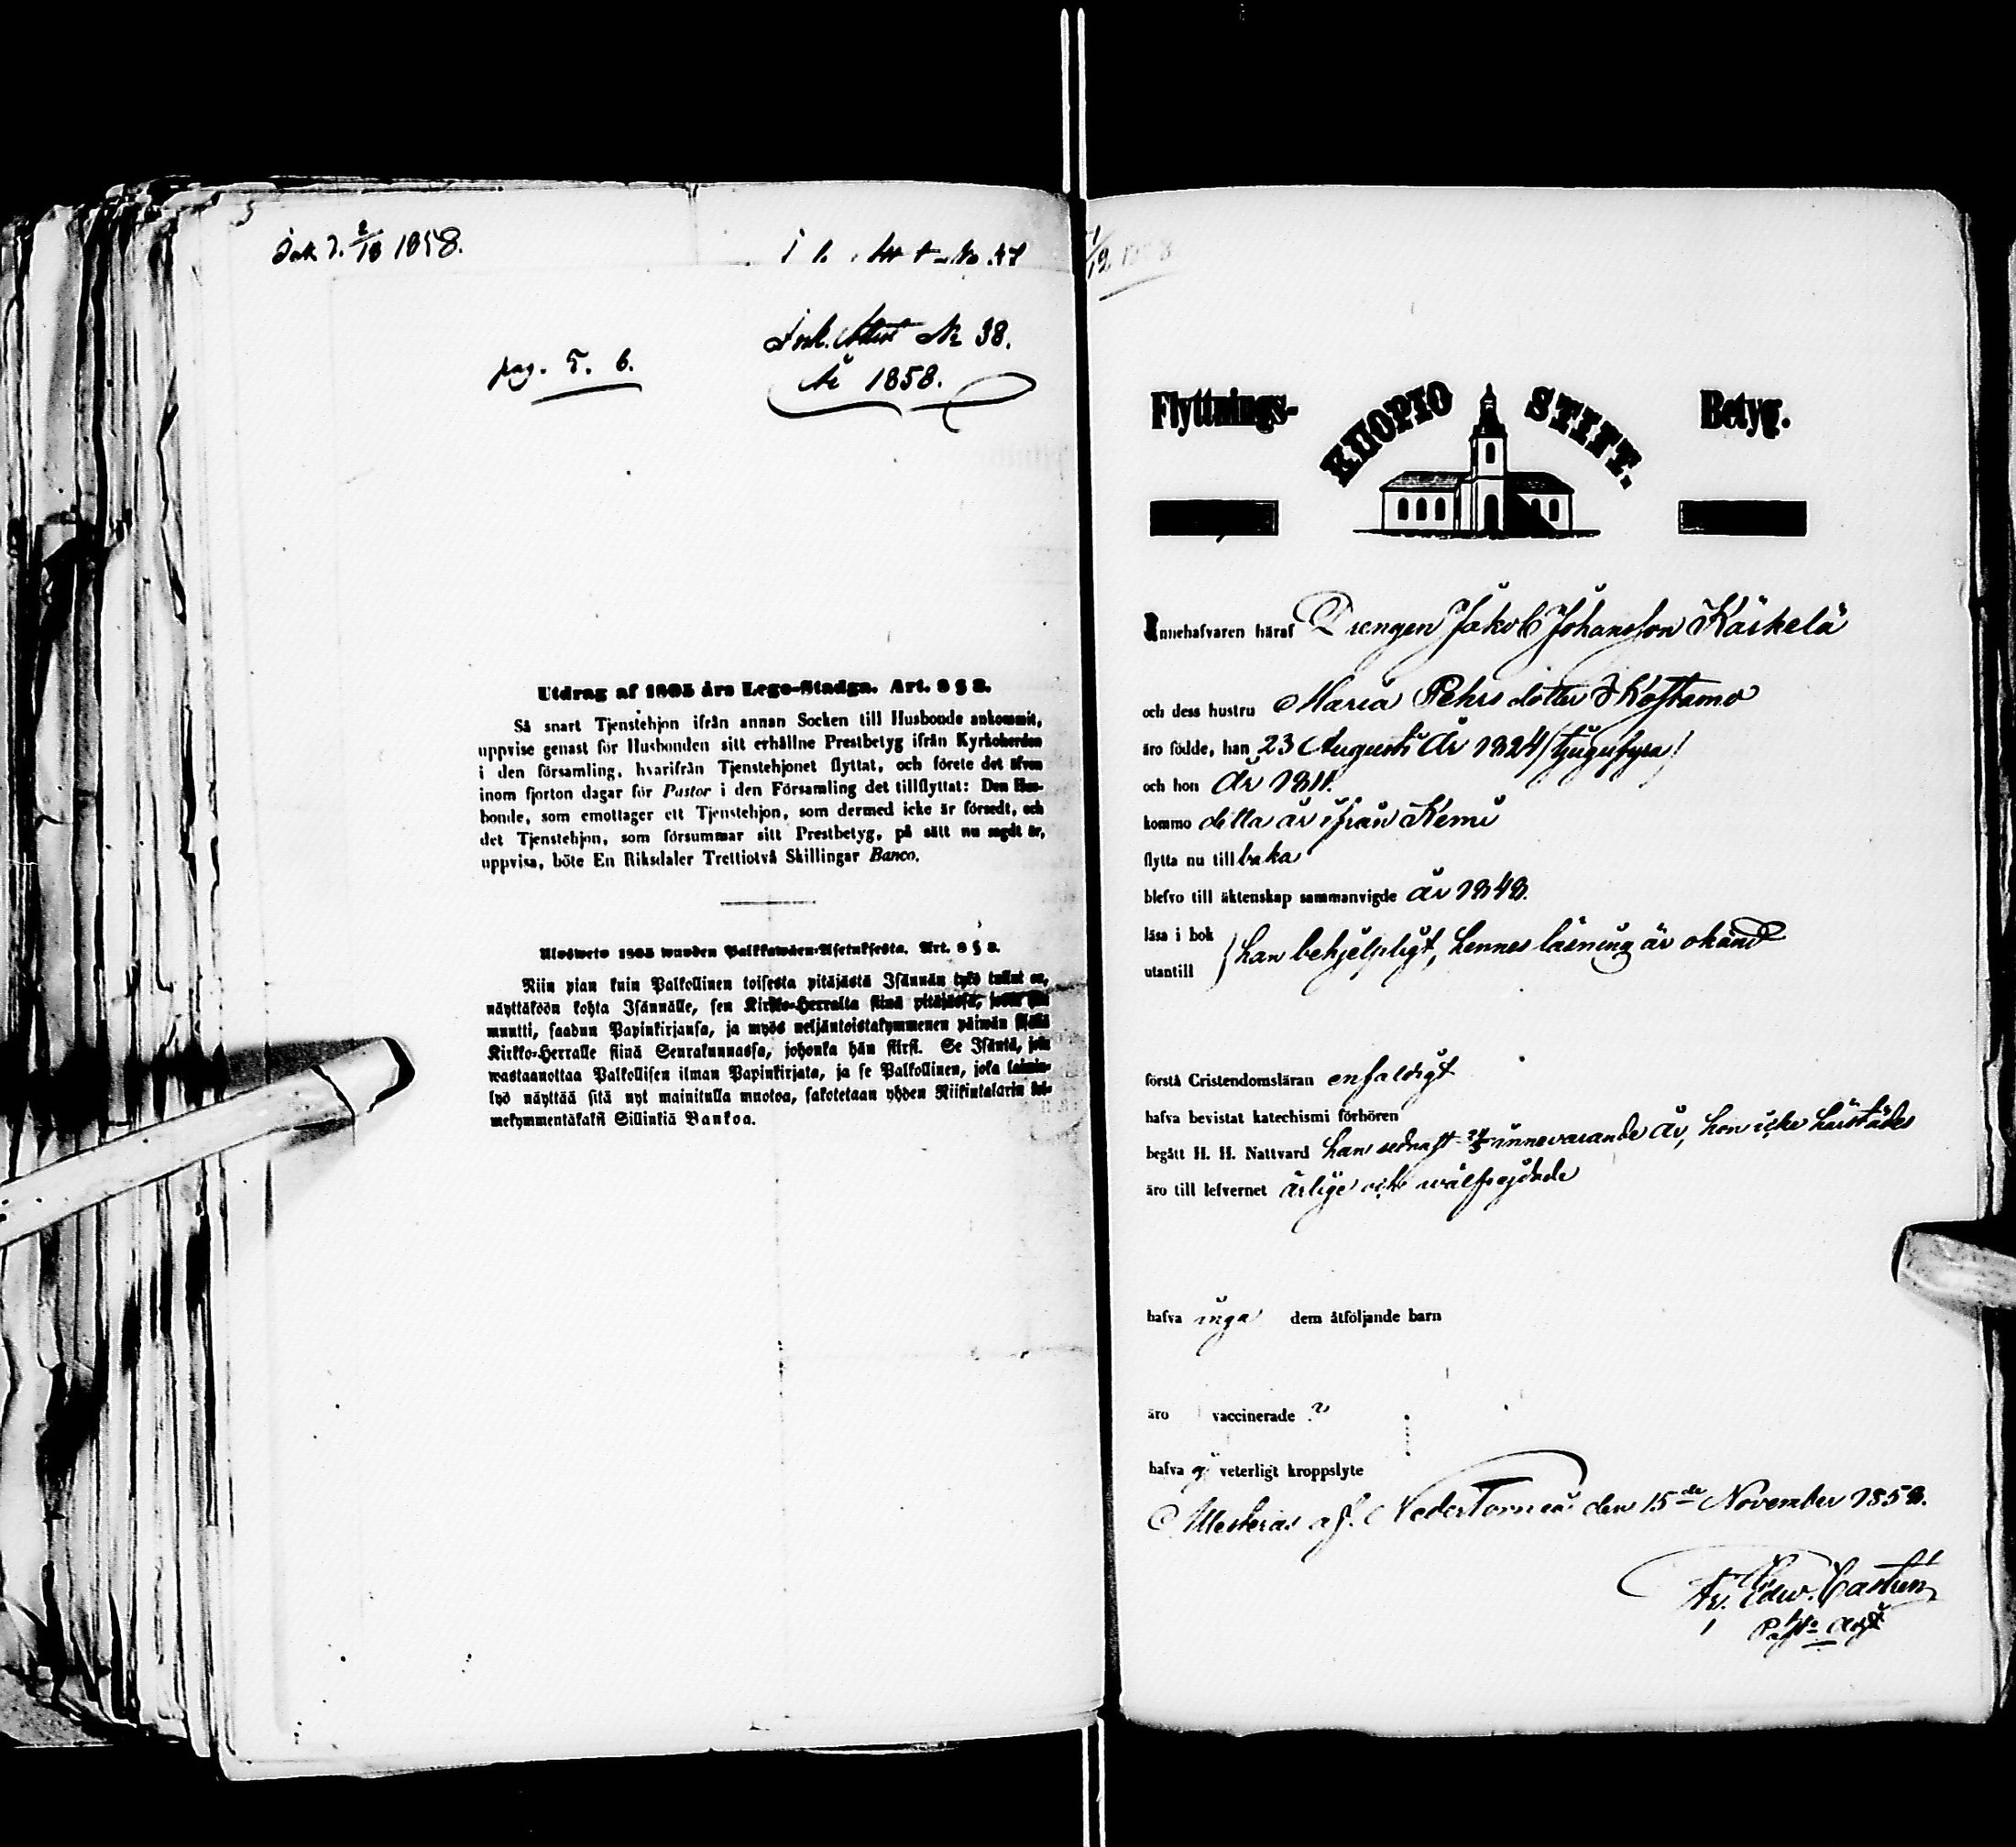 1858.
pag. 5. 6.
Ink. Attest № 38.
År 1858.
Utdrag af 1805 års Lego-Stadga. Art. 8 § 2.
Så snart Tjenstehjon ifrån annan Socken till Husbonde ankommit,
uppvise genast för Husbonden sitt erhållne Prestbetyg ifrån Kyrkoherden
i den församling, hvarifrån Tjenstehjonet flyttat, och förete det äfven
inom fjorton dagar för Pastor i den Församling det tillflyttat: Den Hus-
bonde, som emottager ett Tjenstehjon, som dermed icke är försedt, och
det Tjenstehjon, som försummar sitt Prestbetyg, på sätt nu sagdt är,
uppvisa, böte En Riksdaler Trettiotvå Skillingar Banco.
Ulosweto 1805 wuoden Palkkawäen-Asetuksesta. Art. 8 § 2.
Niin pian kuin Palkollinen toisesta pitäjästä Isännän tykö tullut on,
näyttäköön kohta Isännälle, sen Kirkko-Herralta siinä pitäjässä, josta hän
muutti, saadun Papinkirjansa, ja myös neljäntoistakymmenen päiwän sisällä
Kirkko-Herralle siinä Seurakunnassa, johonka hän siirsi. Se Isäntä, joka
wastaanottaa Palkollisen ilman Papinkirjata, ja se Palkollinen, joka laimin-
lyö näyttää sitä nyt mainitulla muotoa, sakotetaan yhden Riikintalarin kol-
mekymmentäkaksi Sillinkiä Bankoa.
Flyttnings- KUOPIO STIFT. Betyg.
Innehafvaren häraf Drengen Jakob Johansson Käikelä
och dess hustru Maria Pehrsdotter Kostamo
äro födde, han 23 Augusti År 1824 /tjugufyra/
och hon År 1811.
kommo ditta är ifrån Kemi
flytta nu till baka
blefvo till äktenskap sammanvigde år 1848.
läsa i bok
utantill
han behjelpligt, hennes läsning är okänd
förstå Cristendomsläran enfaldigt
hafva bevistat katechismi förhören
begått H. H. Nattvard han sednast innevarande År, hon icke härstädes
äro till lefvernet ärlige och wälfrejdade
hafva inga dem åtföljande barn
äro vaccinerade ?
hafva ej veterligt kroppslyte
Attesteras af. NederTorneå den 15de November 1858.
Fr. Edw. Castrén